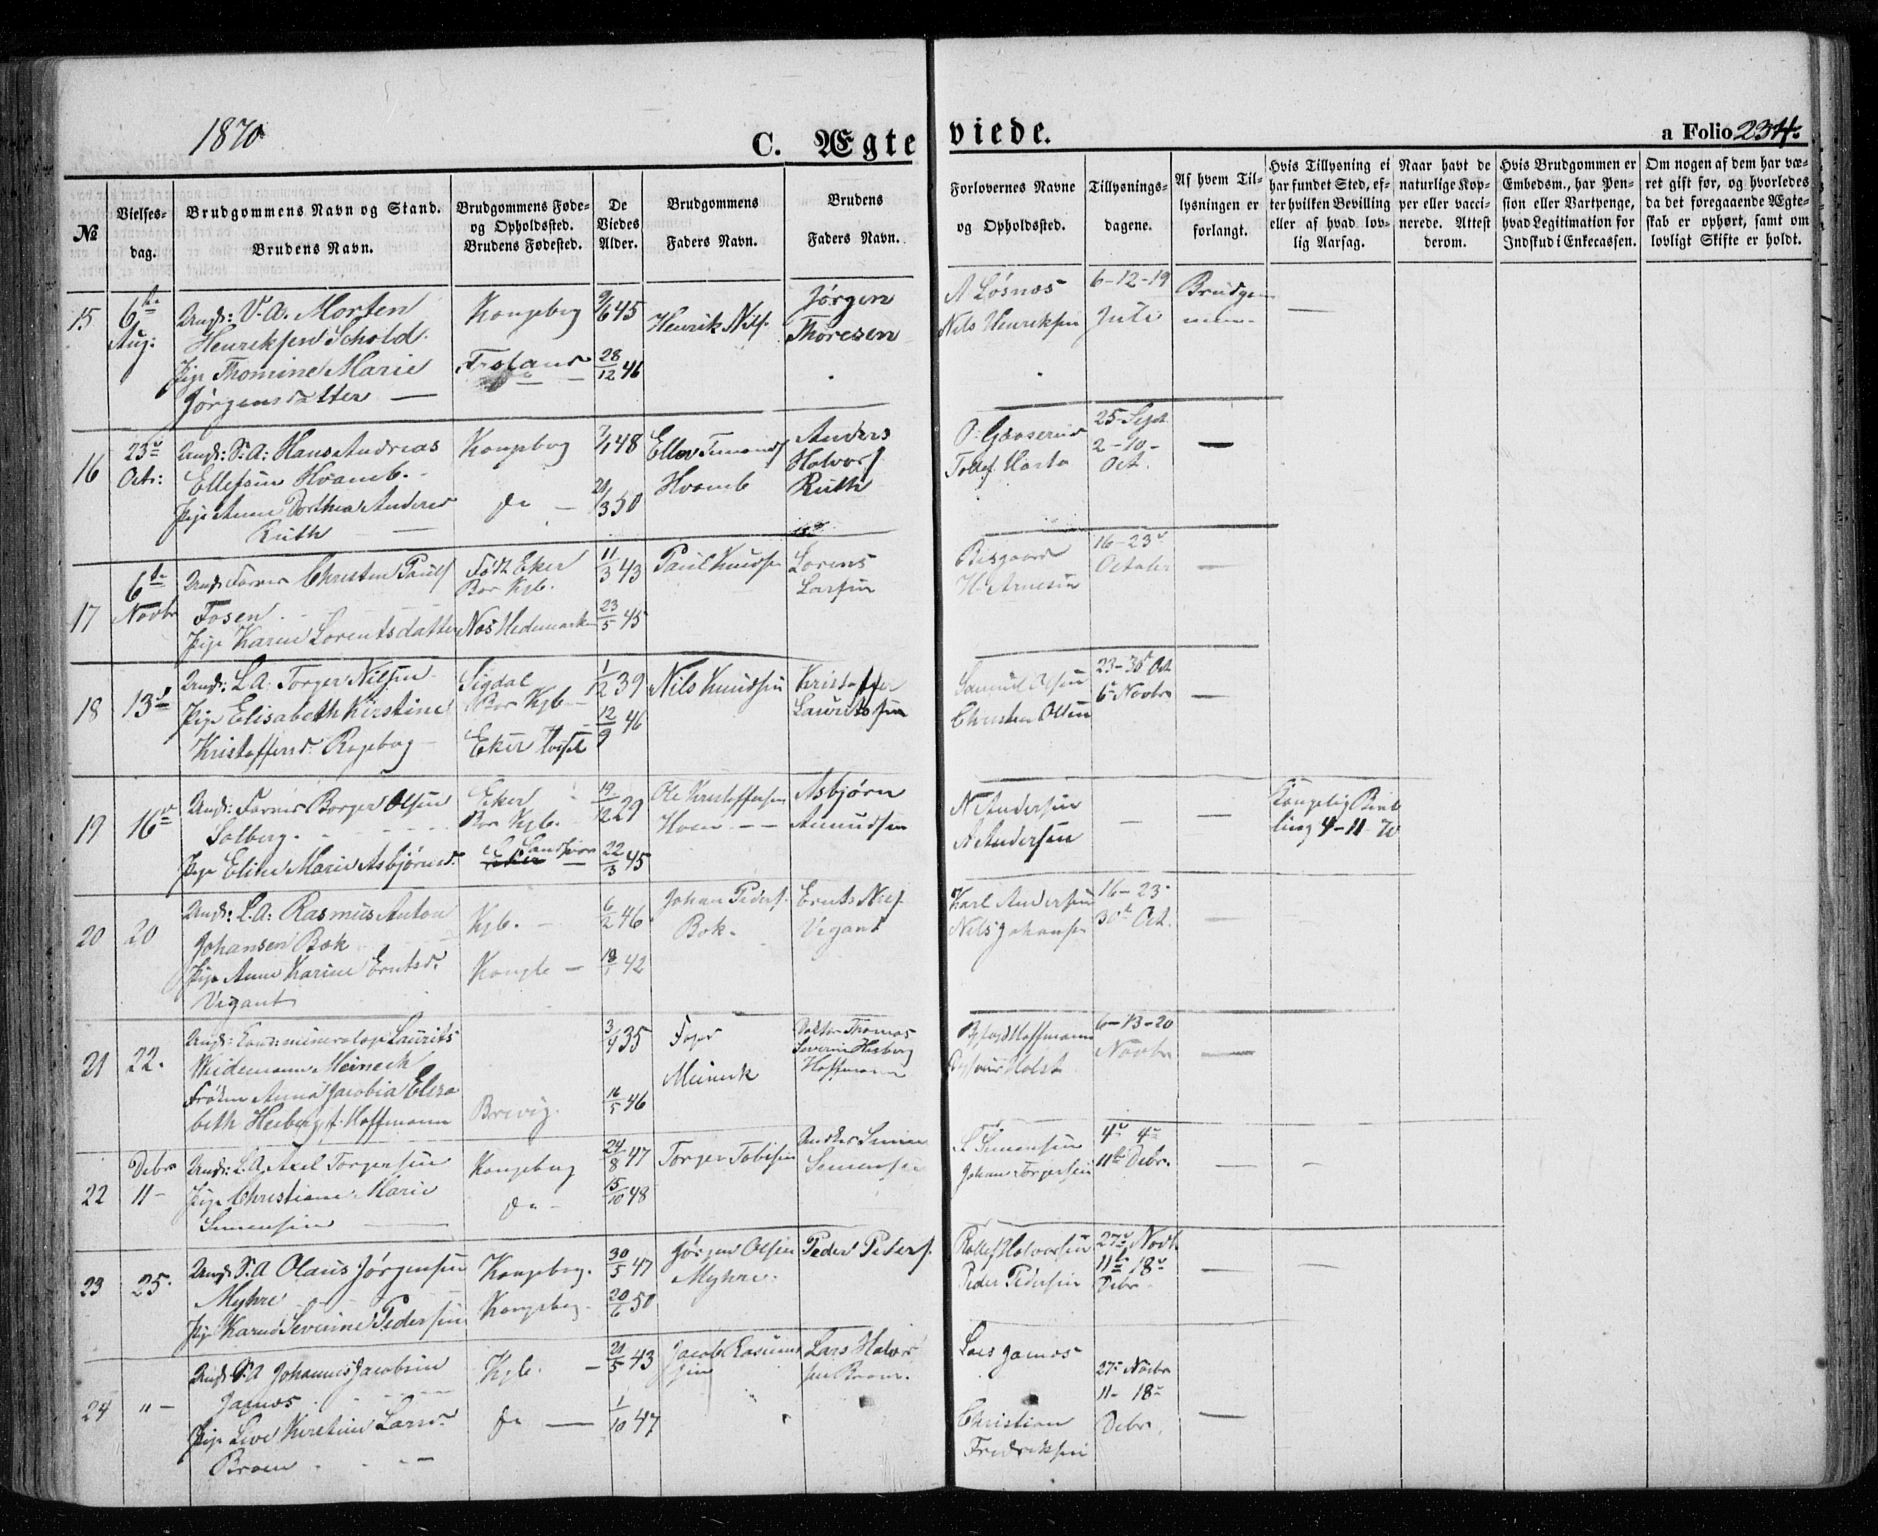 1870
C. Ægteviede.
a Folio 234.
№
Vielses-
dag.
Brudgommens Navn og Stand.
Brudens Navn.
Brudgommens Føde-
og Opholdssted.
Brudens Fødested.
De
Viedes
Alder.
Brudgommens
Faders Navn.
Brudens
Faders Navn.
Forlovernes Navne
og Opholdssted.
Tillysnings-
dagene.
Af hvem Til-
lysningen er
forlangt.
Hvis Tillysning ei
har fundet Sted, ef-
ter hvilken Bevilling
eller af hvad lov-
lig Aarsag.
Naar havt de
naturlige Kop-
per eller vacci-
nerede. Attest
derom.
Hvis Brudgommen er
Embedsm., har Pen-
sion eller Vartpenge,
hvad Legitimation for
Indskud i Enkecassen.
Om nogen af dem har væ-
ret gift før, og hvorledes
da det foregaaende Ægte-
skab er ophørt, samt om
lovligt Skifte er holdt.
15
6te
Aug:
Ungk: V.A. Morten
Henriksen Schold.
Pige Thomine Marie
Jørgensdatter —
Kongsberg
9/6 45
28/12 46
Henrik Nils.
Jørgen
Thoresen
A Løsnæs
Nils Henriksen
6-12-19
Juli
Brudgom-
men
—
16
23de
Octr:
Ungk: S.A: Hans Andreas
Ellefsen Hvamb.
Pige Anne Dorthea Anders
Ruth —
Kongsberg
do —
7/1 48
20/3 50
Ellev
Hvamb
Anders
Halvors
Ruth
25 Sept
2-10-
Oct.
—
17
6te
Novbr
Ungk: Christen Pauls
Fosen
Pige Karen Lorentsdatter
Født Eker
Bor Kgb.
Næs Hedemarken
11/3 43
23/5 45
Paul Knudsen
Lorens
Larsen
Bisgaard
H. Arnesen
16-23de
October
—
18
13de
Ungk: L.A. Torger Nilsen
Pige Elisabeth Kirstine
Kristoffersd. Rogeberg —
Sigdal
Bor Kgb. —
Eker
1/12 39
12/9 46
Nils Knudsen
Kristoffer
Lauritssen
Samuel Olsen
Christen Olsen
23-30 Oct
6 Novbr
—
19
16de
Ungk: Borger Olsen
Solberg.
Pige Eline Marie Asbjørnsd.
Eker
Bor Kgb.
19/12 29
22/3 45
Ole Kristoffersen
Hoen — —
Asbjørn
Amundsen
N Andersen
A Andersen
—
—
Kongelig Bevil
ling 4-11-70
20
20
Ungk: L.A: Rasmus Anton
Johansen Bæk
Pige Anne Karine Erntsd.
Vigant
Kgb. —
Kongb —
6/2 46
18/1 42
Johan Peders.
Bæk.
Ernts Nils.
Vigant
Karl Andersen
Nils Johansen
16-23-
30te Oct.
—
21
22.
Ungk: Laurits
Weidemann Meineck
Frøken Anna Jacobia Elisa
beth Heiberg f. Hoffmann
Brevig.
3/4 35
16/5 46
Meineck
Doktor Thomas
Severin Heiberg
Hoffmann
Hoffmann
Holst
6-13-20
Novbr
—
22
Debr
11-
Ungk: L.A. Axel Torgersen
Pige Christiane Marie
Simensen —
Kongsberg
do -
24/8 47
15/10 48
Torger Tobisen
Simensen
S Simensen
Johan Torgersen
4de 4de
11te Debr.
—
—
23
25.
Ungk: S.A Olaus Jørgensen
Myhre
Pige Karen Severine Pedersen
Kongsberg.
Kongsberg -
30/5 47
20/6 50
Jørgen Olsen
Myhre.
Peder Peders.
Rollef Halvorsen
Peder Pedersen
27de Novbr
11te 18de
Debr
—
—
24
" -
Ungk: S.A Johannes Jacobsen
Jamæs
Pige Live Kirstine Larsd.
Braen
Kgb. —
do —
21/5 43
1/10 47
Jacob Rasmus
sen
Lars Halvor
sen Braen.
Lars Jamæs
Christian
Fredriksen
27de Novbr
11- 18de
Debr.
—